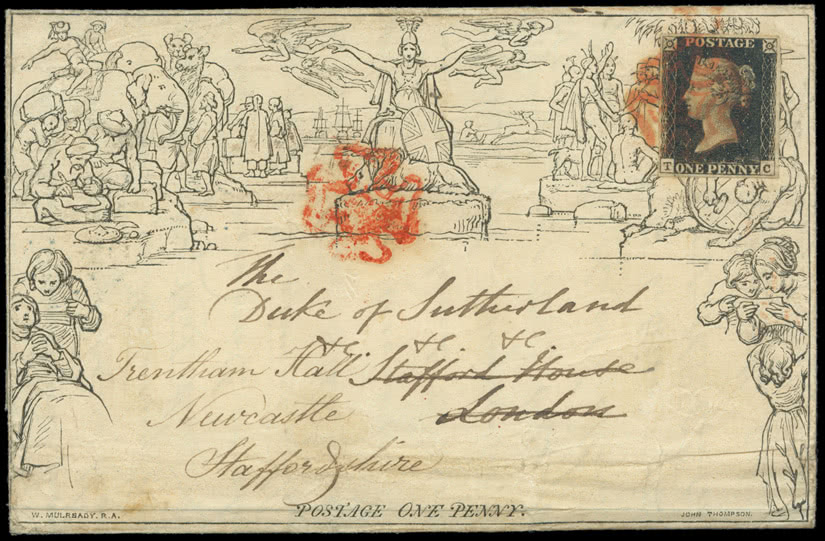 POSTAGE
T ONE PENNY C
The
Duke of Sutherland
&c &c &c
Trentham Hall Stafford House
Newcastle London
Staffordshire
W. MULREADY. R.A.
POSTAGE ONE PENNY.
JOHN THOMPSON.